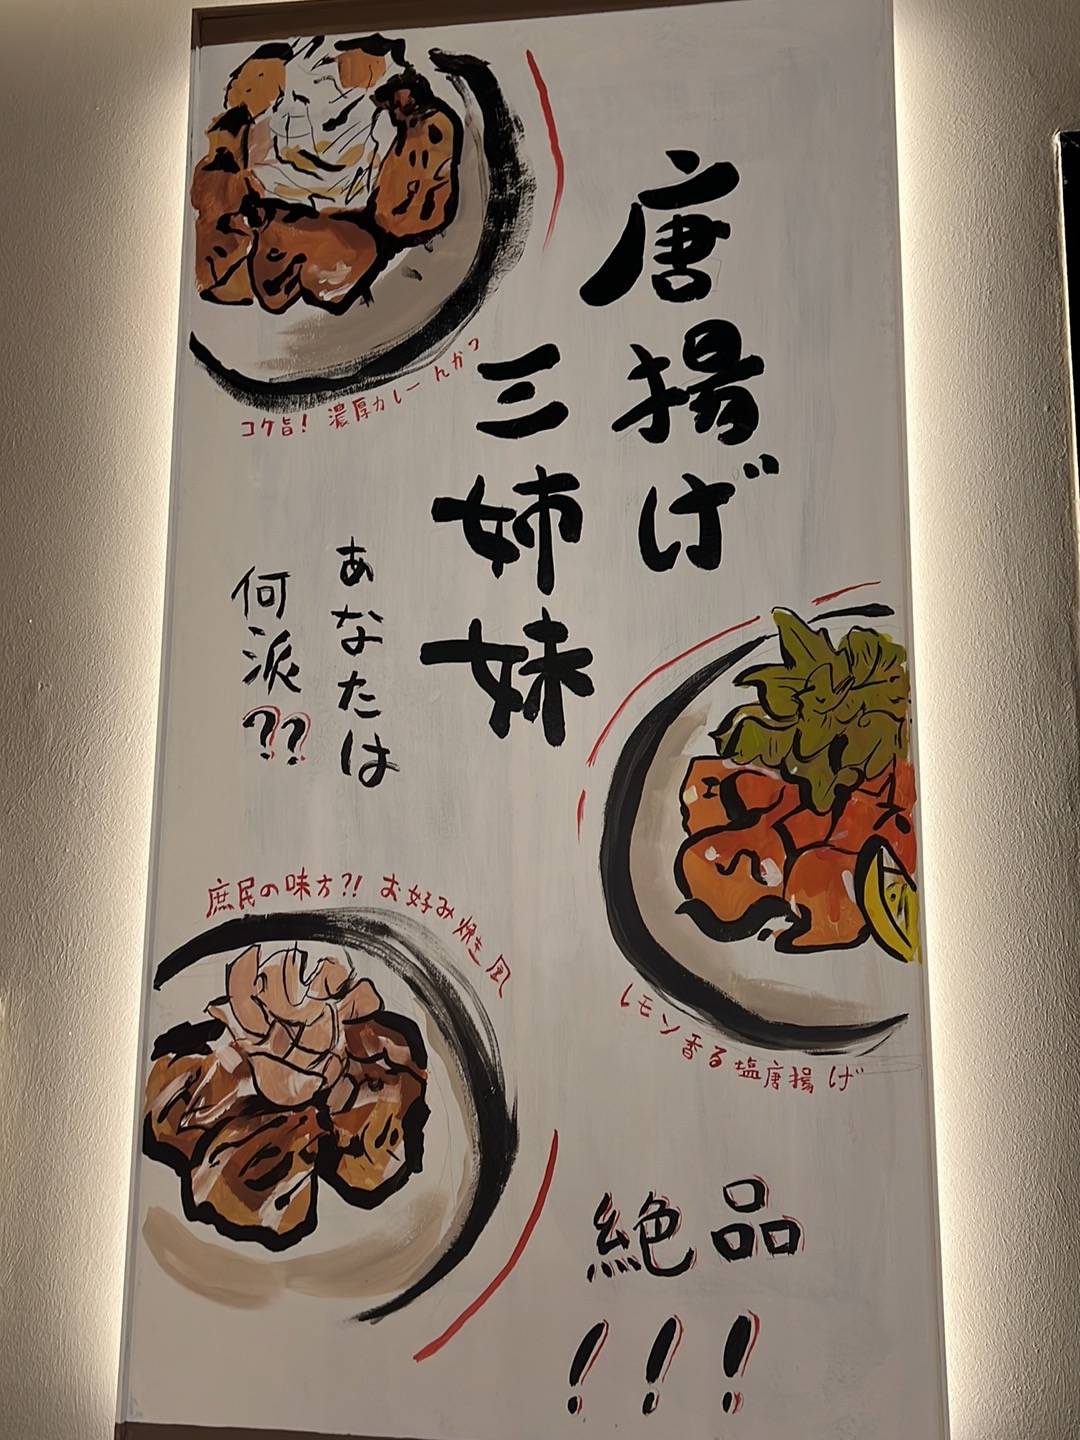 唐揚げ
三姉妹
あなたは
何派??
コク旨!濃厚カレーんかつ
レモン香る塩唐揚げ
庶民の味方?!お好み焼き風
絶品
!!!